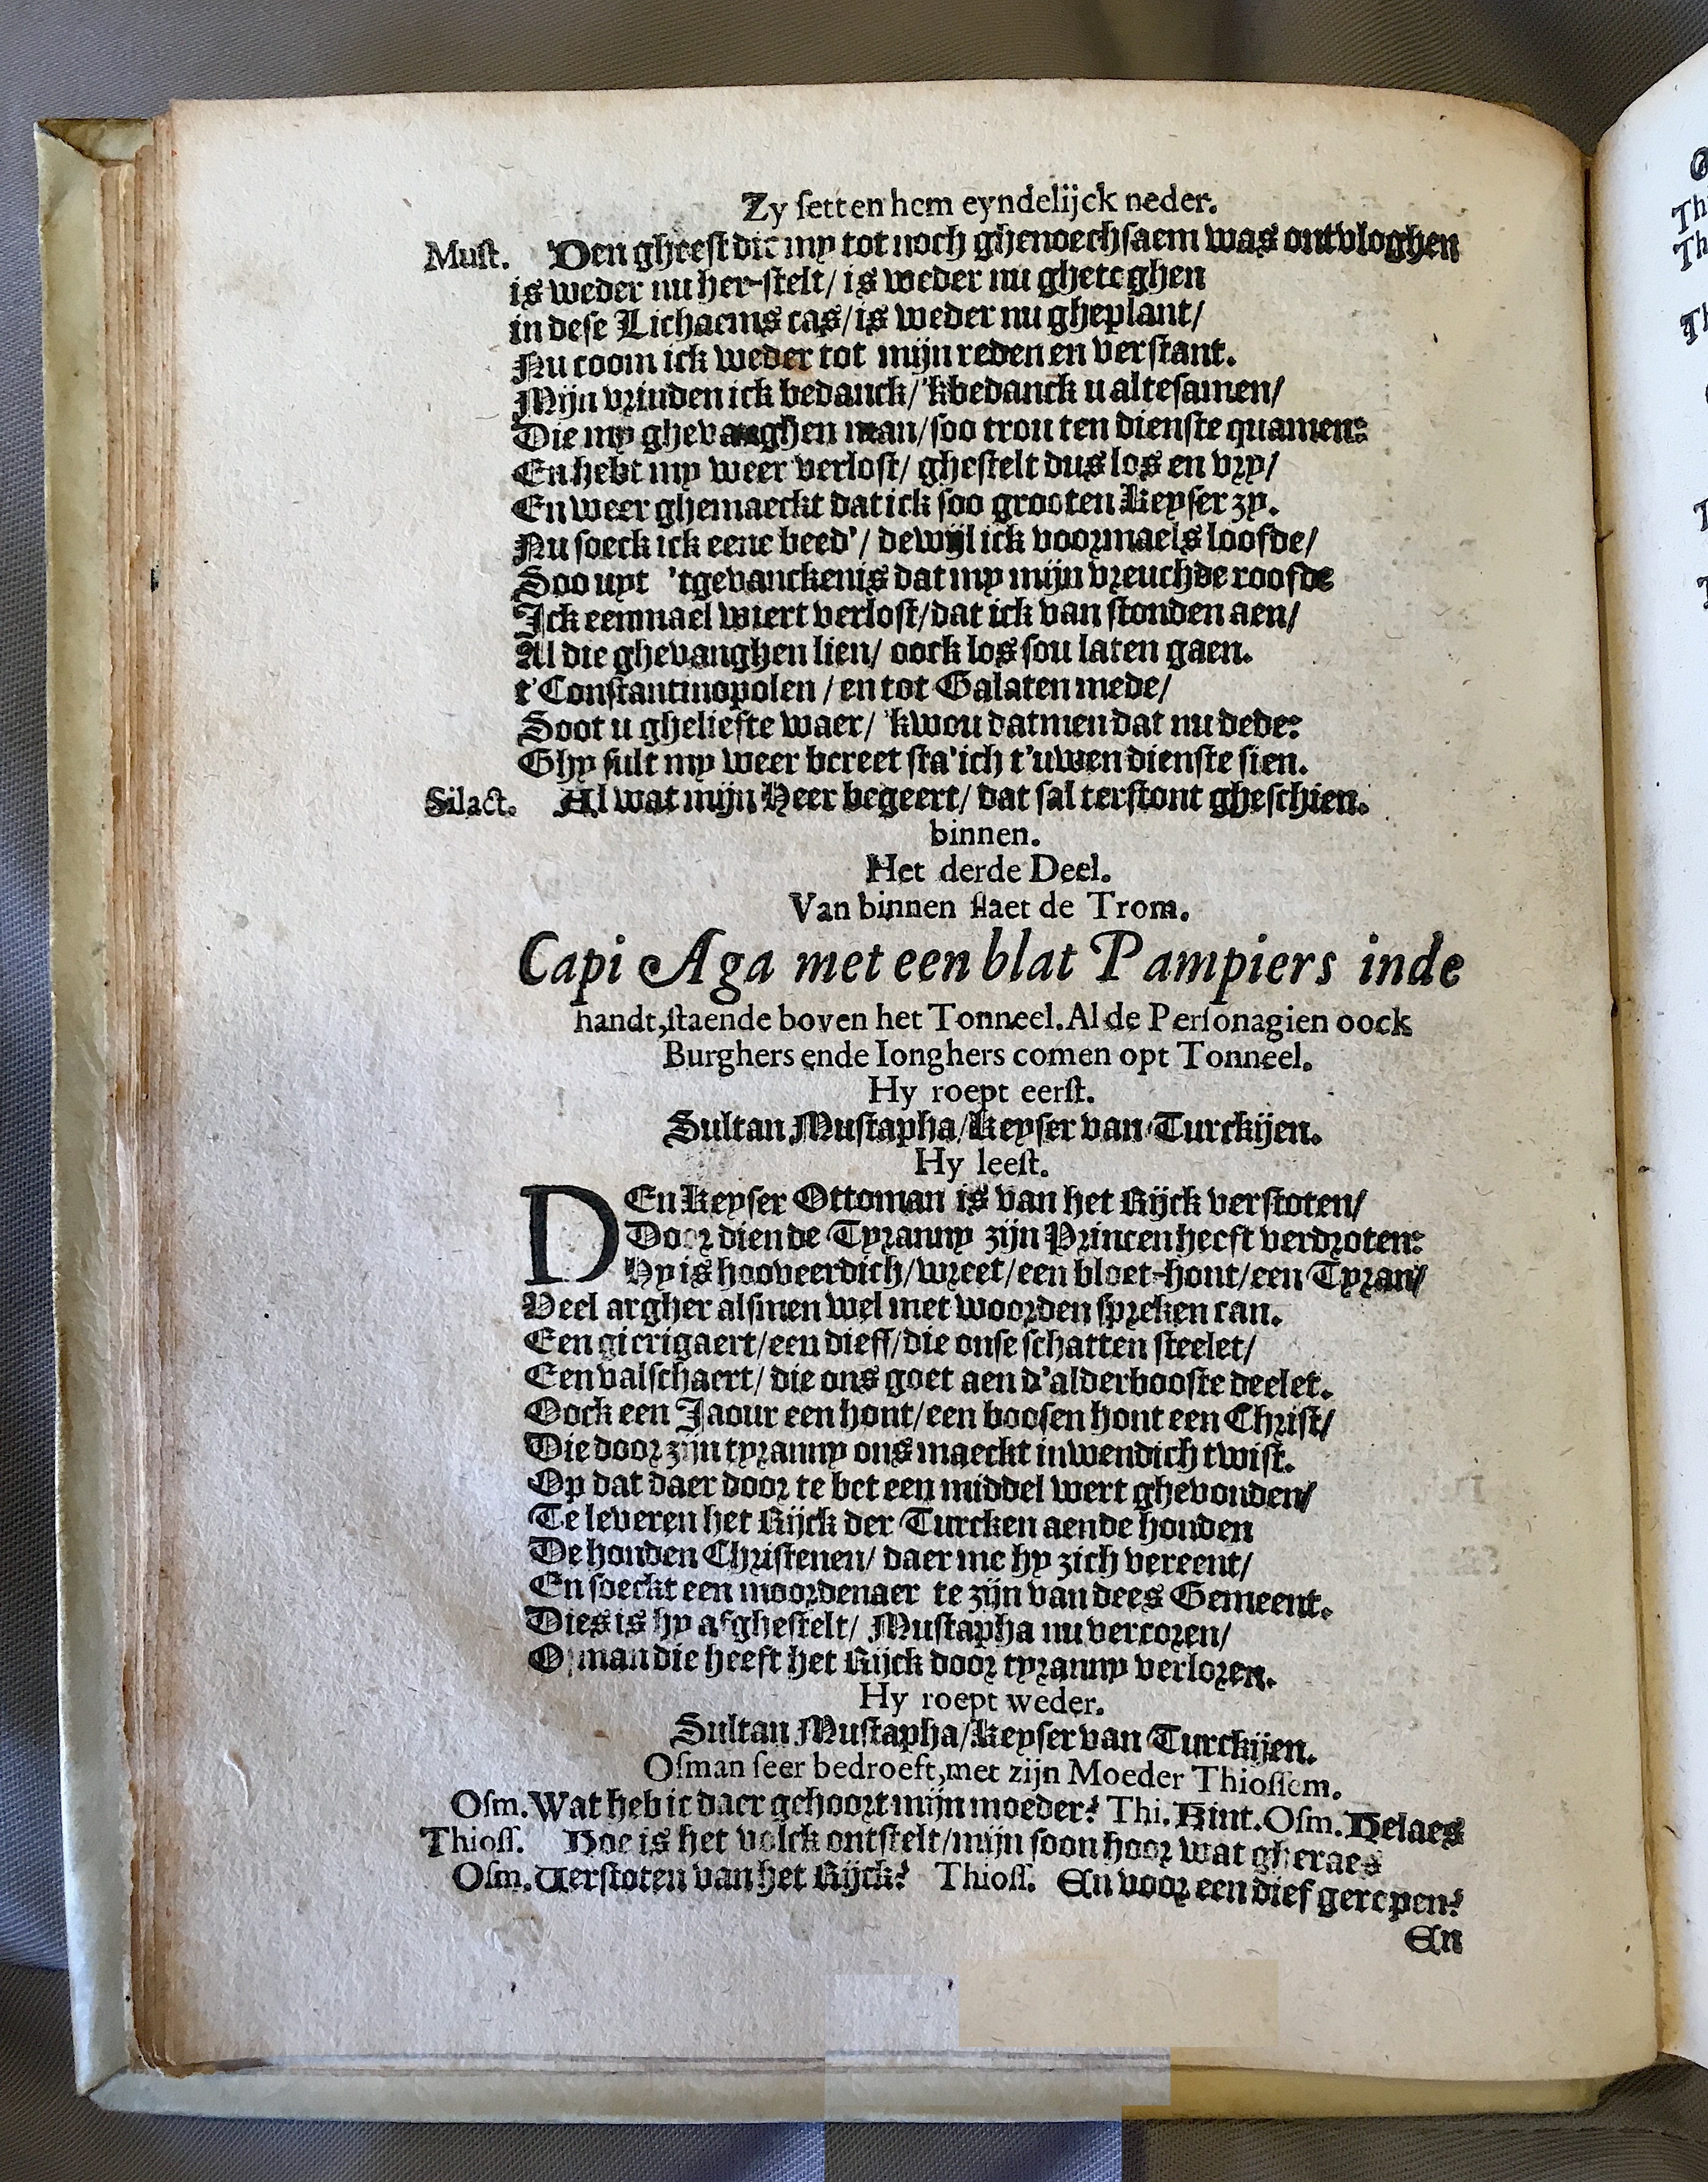 Zy ſetten hem eyndelijck neder.
Muſt. Den gheeſt die my tot noch ghenoechſaem was ontvloghen
is weder nu her-ſtelt/ is weder nu gheteghen
in deſe Lichaems cas/ is weder nu gheplant/
Nu coom ick weder tot mijn reden en verſtant.
Mijn vrinden ick bedanck/ 'kbedanck u alteſamen/
Die my ghevanghen man/ ſoo trou ten dienſte quamen:
En hebt my weer verloſt/ gheſtelt dus los en vry/
En weer ghemaeckt dat ick ſoo grooten Keyſer zy.
Nu ſoeck ick eene beed'/ dewijl ick voormaels loofde/
Soo uyt 'tgevanckenis dat my mijn vreuchde roofde
Ick eenmael wiert verloſt/ dat ick van ſtonden aen/
Al die ghevanghen lien/ oock los ſou laten gaen.
t'Conſtantinopolen / en tot Galaten mede/
Soot u gheliefte waer/ 'kwou datmen dat nu dede:
Ghy ſult my weer bereet ſta'ich t'uwen dienſte ſien.
Silact. Al wat mijn Heer begeert/ dat ſal terſtont gheſchien.
binnen.
Het derde Deel.
Van binnen ſlaet de Trom.
Capi Aga met een blat Pampiers inde
handt, ſtaende boven het Tonneel. Al de Perſonagien oock
Burghers ende Ionghers comen opt Tonneel.
Hy roept eerſt.
Sultan Muſtapha/ Keyſer van Turckijen.
Hy leeſt.
DEn Keyſer Ottoman is van het Rijck verſtoten/
Door dien de Tyranny zijn Princen heeft verdroten:
Hy is hooveerdich/ wreet/ een bloet-hont/ een Tyran/
Veel argher alſmen wel met woorden ſpreken can.
Een gierigaert/ een dieff/ die onſe ſchatten ſteelet/
Een valſchaert/ die ons goet aen d'alderbooſte deelet.
Oock een Jaour een hont/ een booſen hont een Chriſt/
Die door zijn tyranny ons maeckt inwendich twiſt.
Op dat daer door te bet een middel wert ghevonden/
Te leveren het Rijck der Turcken aende honden
De honden Chriſtenen/ daer me hy zich vereent/
En ſoeckt een moordenaer te zijn van dees Gemeent.
Dies is hy afgheſtelt/ Muſtapha nu vercoren/
Oſman die heeft het Rijck door tyranny verloren.
Hy roept weder.
Sultan Muſtapha/ Keyſer van Turckijen.
Oſman ſeer bedroeft, met zijn Moeder Thioſſem.
Oſm. Wat heb ic daer gehoort mijn moeder? Thi. Kint. Oſm. Helaes
Thioſſ. Hoe is het volck ontſtelt/ mijn ſoon hoor wat gheraes
Oſm. Verſtoten van het Rijck? Thioſſ. En voor een dief geropen?
En